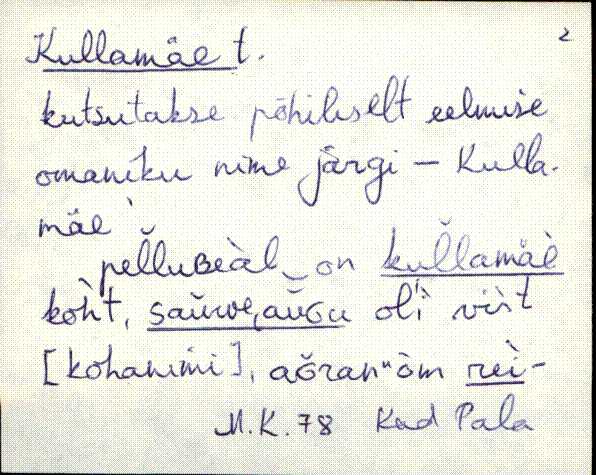 2
Kullamäe t.
kutsutakse põhiliselt eelmise
omaniku nime järgi – Kulla-
mäe
pəl̆luʙeàl on kul̆lamäe
koh̀t, sau̯we, au̯ɢu oli vist
[kohanimi], aŏran òm rei-
M.K. 78 Kad Pala